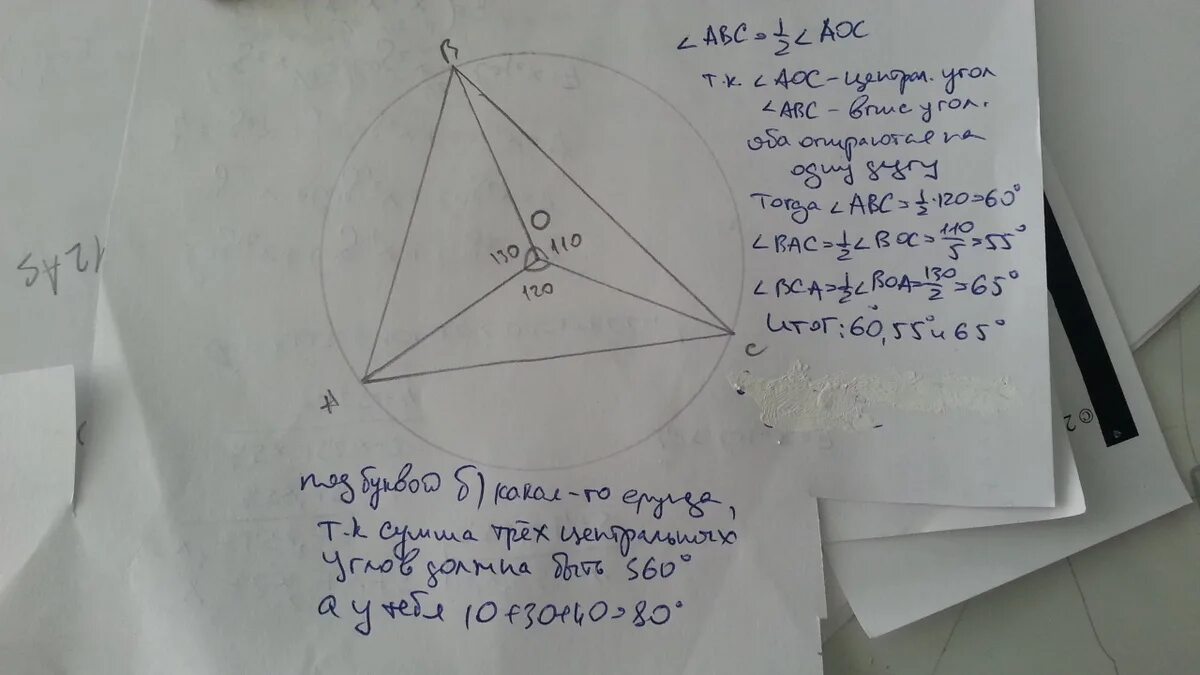 B
O
130
110
120
A
C
∠ABC=½∠AOC
т.к ∠AOC-централ. угол
∠ABC - впис угол.
оба опираются на
одну дугу
Тогда ∠ABC=½·120=60°
∠BAC=½∠BOC=110/5=55°
∠BCA=½∠BOA=130/2=65°
Итог: 60°, 55° и 65°
под буквой б) какая-то ерунда,
т.к сумма трёх центральных
углов должна быть 360°
а у тебя 10+30+40=80°
12AS
©2